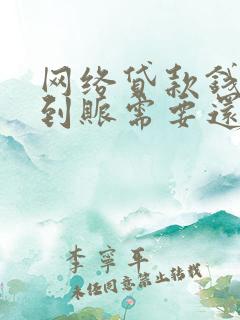 网络贷款钱
到账需要还
李寧平
未经同意禁止转载